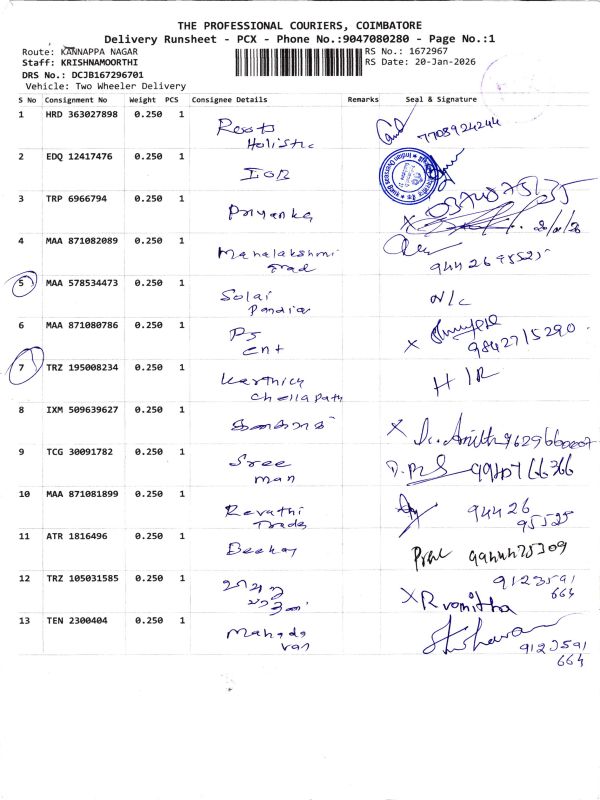 THE PROFESSIONAL COURIERS, COIMBATORE
Delivery Runsheet - PCX - Phone No.:9047080280 - Page No.:1
Route: KANNAPPA NAGAR
RS No.: 1672967
Staff: KRISHNAMOORTHI
RS Date: 20-Jan-2026
DRS No.: DCJB167296701
Vehicle: Two Wheeler Delivery
S No Consignment No Weight PCS Consignee Details Remarks Seal & Signature
1 HRD 363027898 0.250 1 Roots 7708924244
Holistic
2 EDQ 12417476 0.250 1 IOB
3 TRP 6966794 0.250 1 Priyanka X
4 MAA 871082089 0.250 1 Mahalakshmi
Trad 9442695525
5 MAA 578534473 0.250 1 Solai N/C
Pandian
6 MAA 871080786 0.250 1 PS X 9842715290
Ent
7 TRZ 195008234 0.250 1 Karthick H/R
Chellapath
8 IXM 509639627 0.250 1 X
9 TCG 30091782 0.250 1 Sree
man
10 MAA 871081899 0.250 1 Revathi 94426
Trads 95525
11 ATR 1816496 0.250 1 Beekay
12 TRZ 105031585 0.250 1 9123591
664
X
13 TEN 2300404 0.250 1 Mahade
van 9123591
664